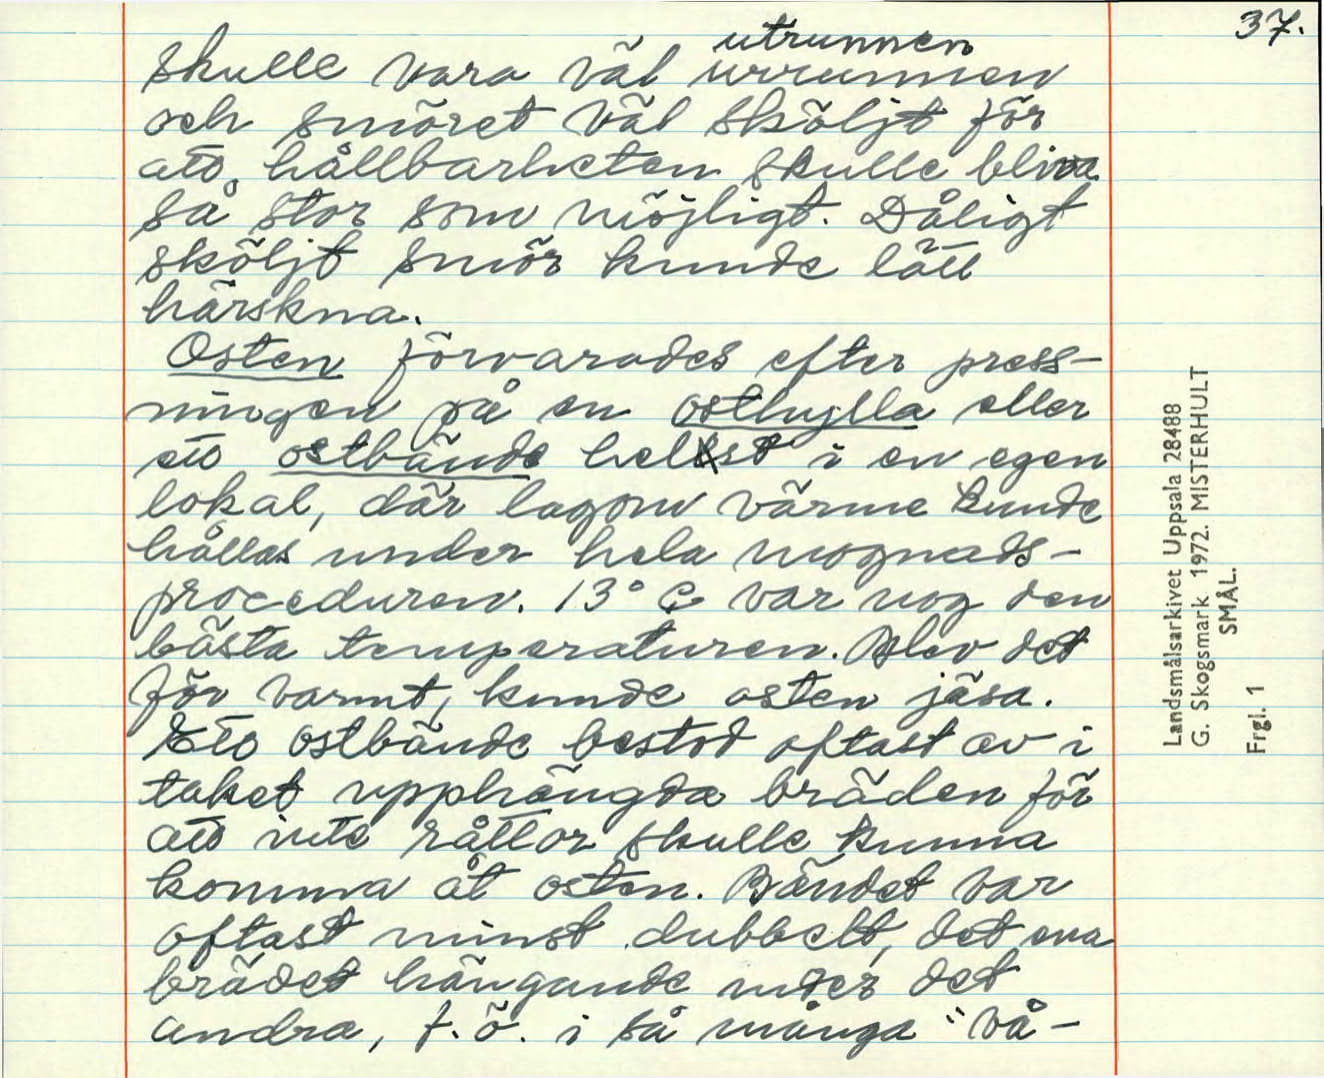 37.
utrunnen
skulle vara väl urrunnen
och smöret väl sköljt för
att hållbarheten skulle bliva
så stor som möjligt. Dåligt
sköljt smör kunde lätt
härskna.
Osten förvarades efter press-
ningen på en osthylla eller
ett ostbände helst i en egen
lokal, där lagom värme kunde
hållas under hela mognads-
proceduren. 13° C var nog den
bästa temperaturen. Blev det
för varmt, kunde osten jäsa.
Ett ostbände bestod oftast av i
taket upphängda bräden för
att inte råttor skulle kunna
komma åt osten. Bändet var
oftast minst dubbelt, det ena
brädet hängande under det
andra, f.ö. i så många "vå-
Landsmålsarkivet Uppsala 28488
G. Skogsmark 1972. MISTERHULT
SMÅL.
Frgl. 1